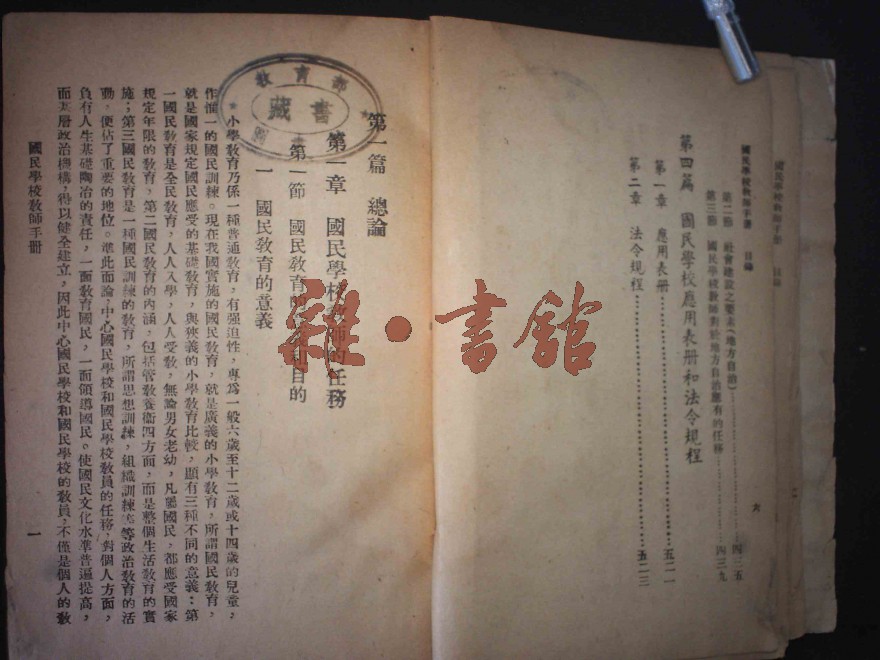 國民學校教師手冊 目錄
第二節 社會建設之要素(地方自治)……四三五
第三節 國民學校教師對於地方自治應有的任務……四三九
第四篇 國民學校應用表册和法令規程
第一章 應用表册……五二一
第二章 法令規程……五二三
六
教育部
藏書
雜·書館
第一篇 總論
第一章 國民學校教師的任務
第一節 國民教育的意義和目的
一 國民教育的意義
小學教育乃係一種普通教育,有强迫性,專爲一般六歲至十二歲或十四歲的兒童,
作惟一的國民訓練。現在我國實施的國民教育,就是廣義的小學教育,所謂國民教育,
就是國家規定國民應受的基礎教育,與狹義的小學教育比較,顯有三種不同的意義:第
一國民教育是全民教育,人人入學,人人受教,無論男女老幼,凡屬國民,都應受國家
規定年限的教育,第二國民教育的內涵,包括管教養衛四方面,而是整個生活教育的實
施;第三國民教育是一種國民訓練的教育,所謂思想訓練,組織訓練等等政治教育的活
動,便佔了重要的地位。準此而論,中心國民學校和國民學校教員的任務,對個人方面,
負有人生基礎陶冶的責任,一面教育國民,一面領導國民。使國民文化水準普遍提高,
而基層政治機構,得以健全建立,因此中心國民學校和國民學校的教員,不僅是個人的教
國民學校教師手册
一